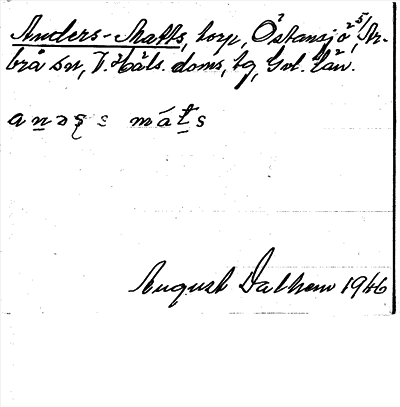 Anders-Matts, torp, Östansjö, Ar-
brå sn, V. Häls. doms, bg, Gvl. län.
mát̲s
August Dalhem 1946